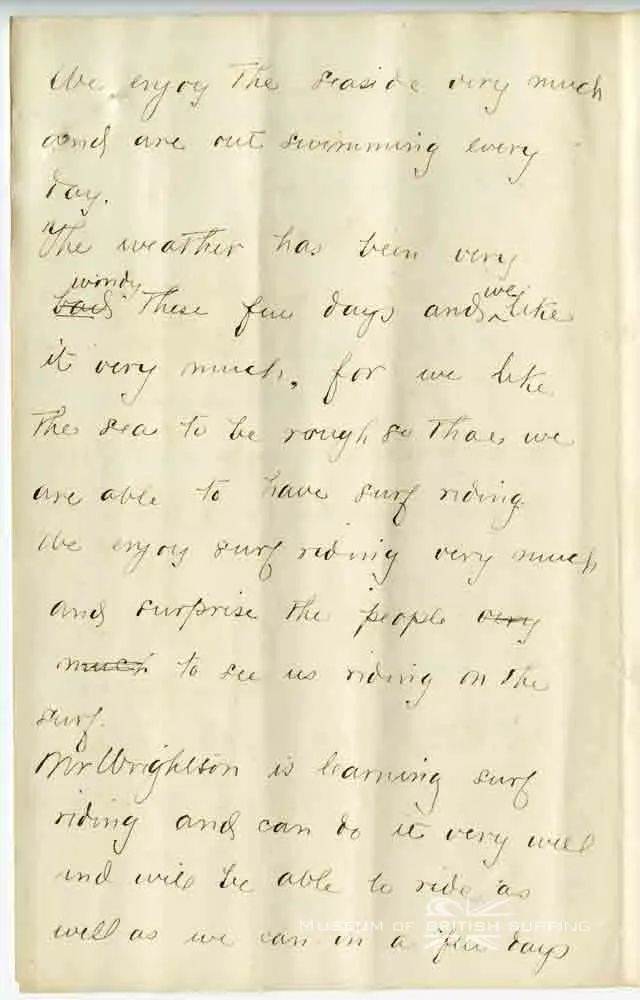 We enjoy the seaside very much
and are out swimming every
day.
The weather has been very
windy
bad these few days and we like
it very much, for we like
the sea to be rough so that we
are able to have surf riding.
We enjoy surf riding very much
and surprise the people very
much to see us riding on the
surf.
Mr Wrightson is learning surf
riding and can do it very well
and will be able to ride as
well as we can in a few days
MUSEUM OF BRITISH SURFING